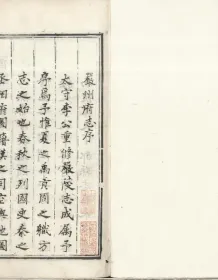 嚴州府志序
太守李公重修嚴陵志成屬予
序為予惟夏之禹貢周之職方
志之始也春秋之列國史秦之
圖籍漢之